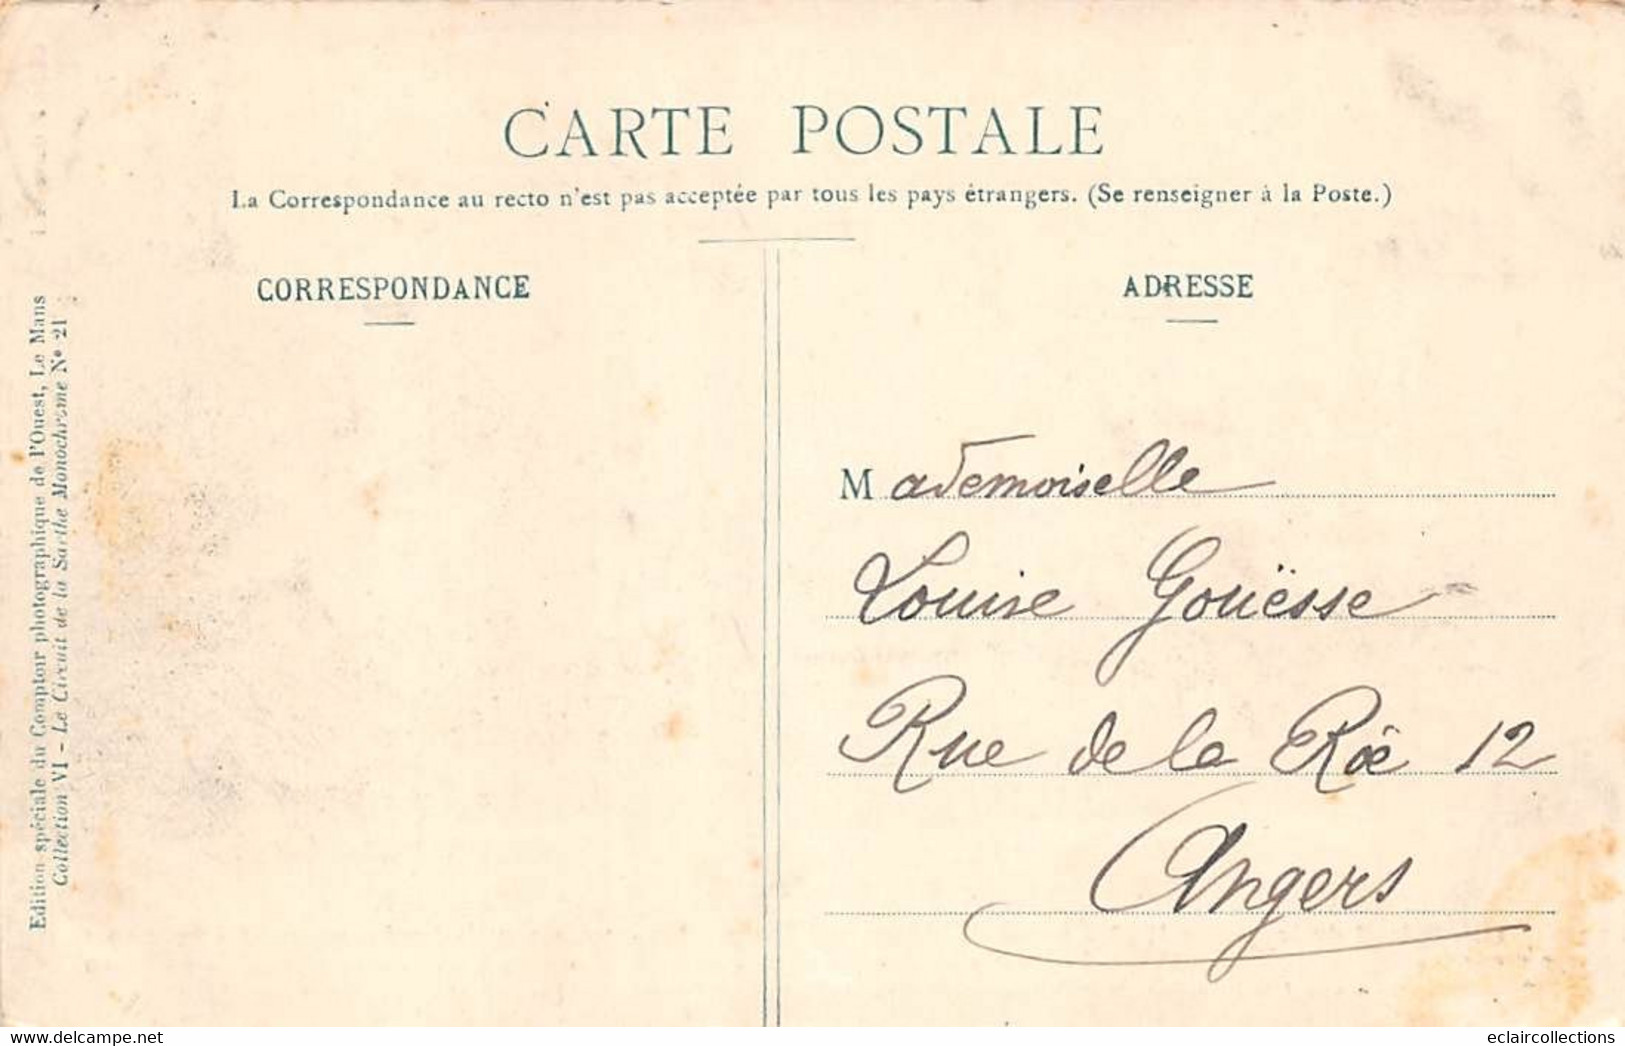 CARTE POSTALE
La Correspondance au recto n'est pas acceptée par tous les pays étrangers. (Se renseigner à la Poste.)
CORRESPONDANCE
ADRESSE
Edition spéciale du Comptoir photographique de l'Ouest, Le Mans
Collection VI - Le Circuit de la Sarthe Monochrome N° 21
Mademoiselle
Louise Gouësse
Rue de la Roë 12
Angers
www.delcampe.net
eclaircollections